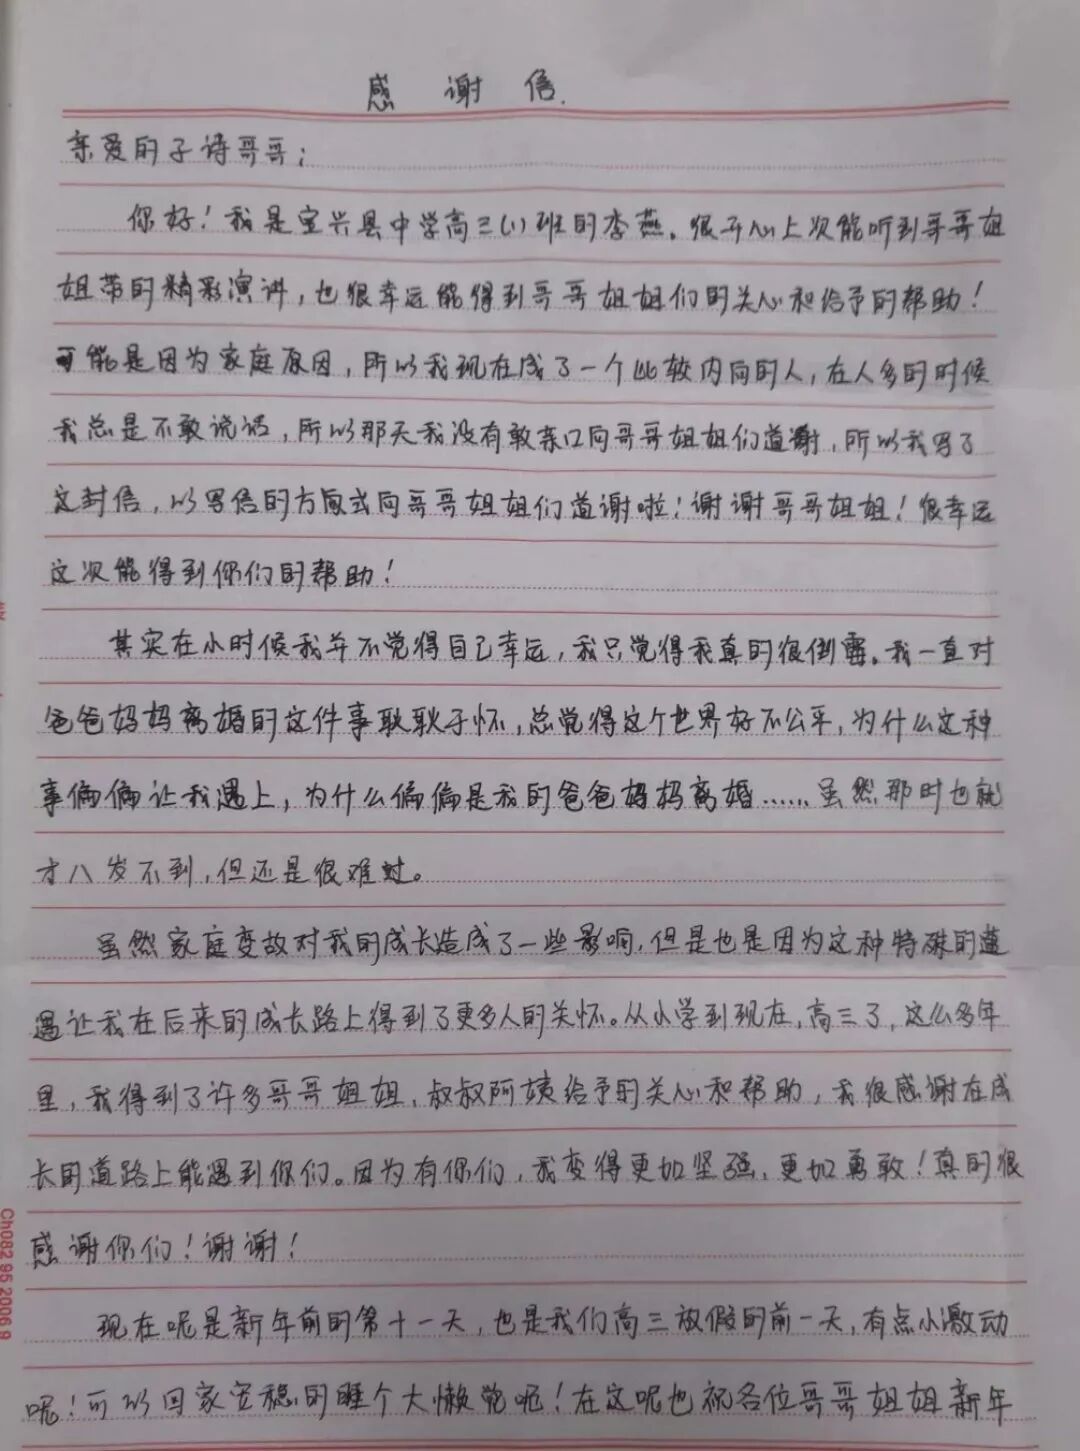 感 谢 信.
亲爱的子诗哥哥:
你好!我是宝兴县中学高三(1)班的李燕。很开心上次能听到哥哥姐
姐带的精彩演讲,也很幸运能得到哥哥姐姐们的关心和给予的帮助!
可能是因为家庭原因,所以我现在成了一个比较内向的人,在人多的时候
我总是不敢说话,所以那天我没有敢亲口向哥哥姐姐们道谢,所以我写了
这封信,以写信的方式向哥哥姐姐们道谢啦!谢谢哥哥姐姐!很幸运
这次能得到你们的帮助!
其实在小时候我并不觉得自己幸运,我只觉得我真的很倒霉。我一直对
爸爸妈妈离婚的这件事耿耿于怀,总觉得这个世界好不公平,为什么这种
事偏偏让我遇上,为什么偏偏是我的爸爸妈妈离婚......虽然那时也就
才八岁不到,但还是很难过。
虽然家庭变故对我的成长造成了一些影响,但是也是因为这种特殊的遭
遇让我在后来的成长路上得到了更多人的关怀。从小学到现在,高三了,这么多年
里,我得到了许多哥哥姐姐、叔叔阿姨给予的关心和帮助,我很感谢在成
长的道路上能遇到你们。因为有你们,我变得更加坚强,更加勇敢!真的很
感谢你们!谢谢!
现在呢是新年前的第十一天,也是我们高三放假的前一天,有点小激动
呢!可以回家安稳的睡个大懒觉呢!在这呢也祝各位哥哥姐姐新年
Ch082 95 2006.9